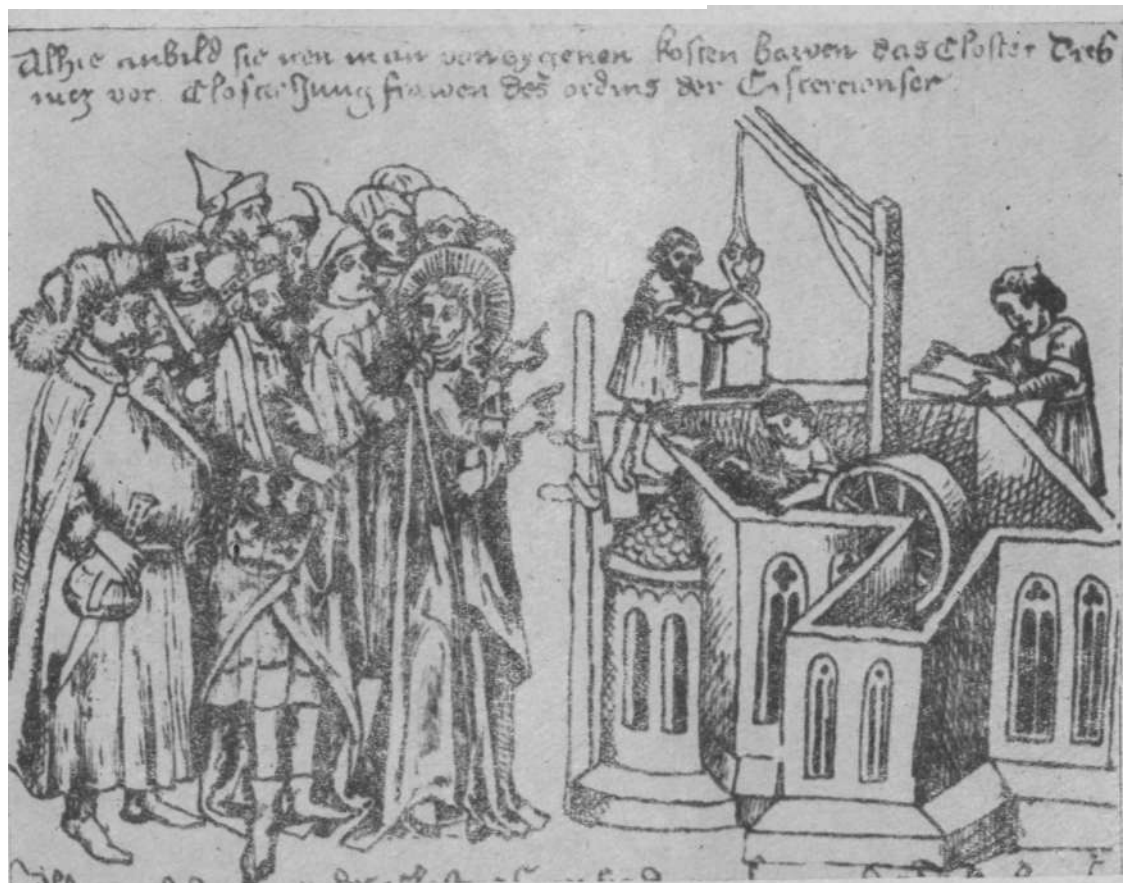 Alhie anbild sie iren man von eygenen kosten bawen das Closter Treb
nitz vor Closter Jungfrawen des ordins der Cistercienser